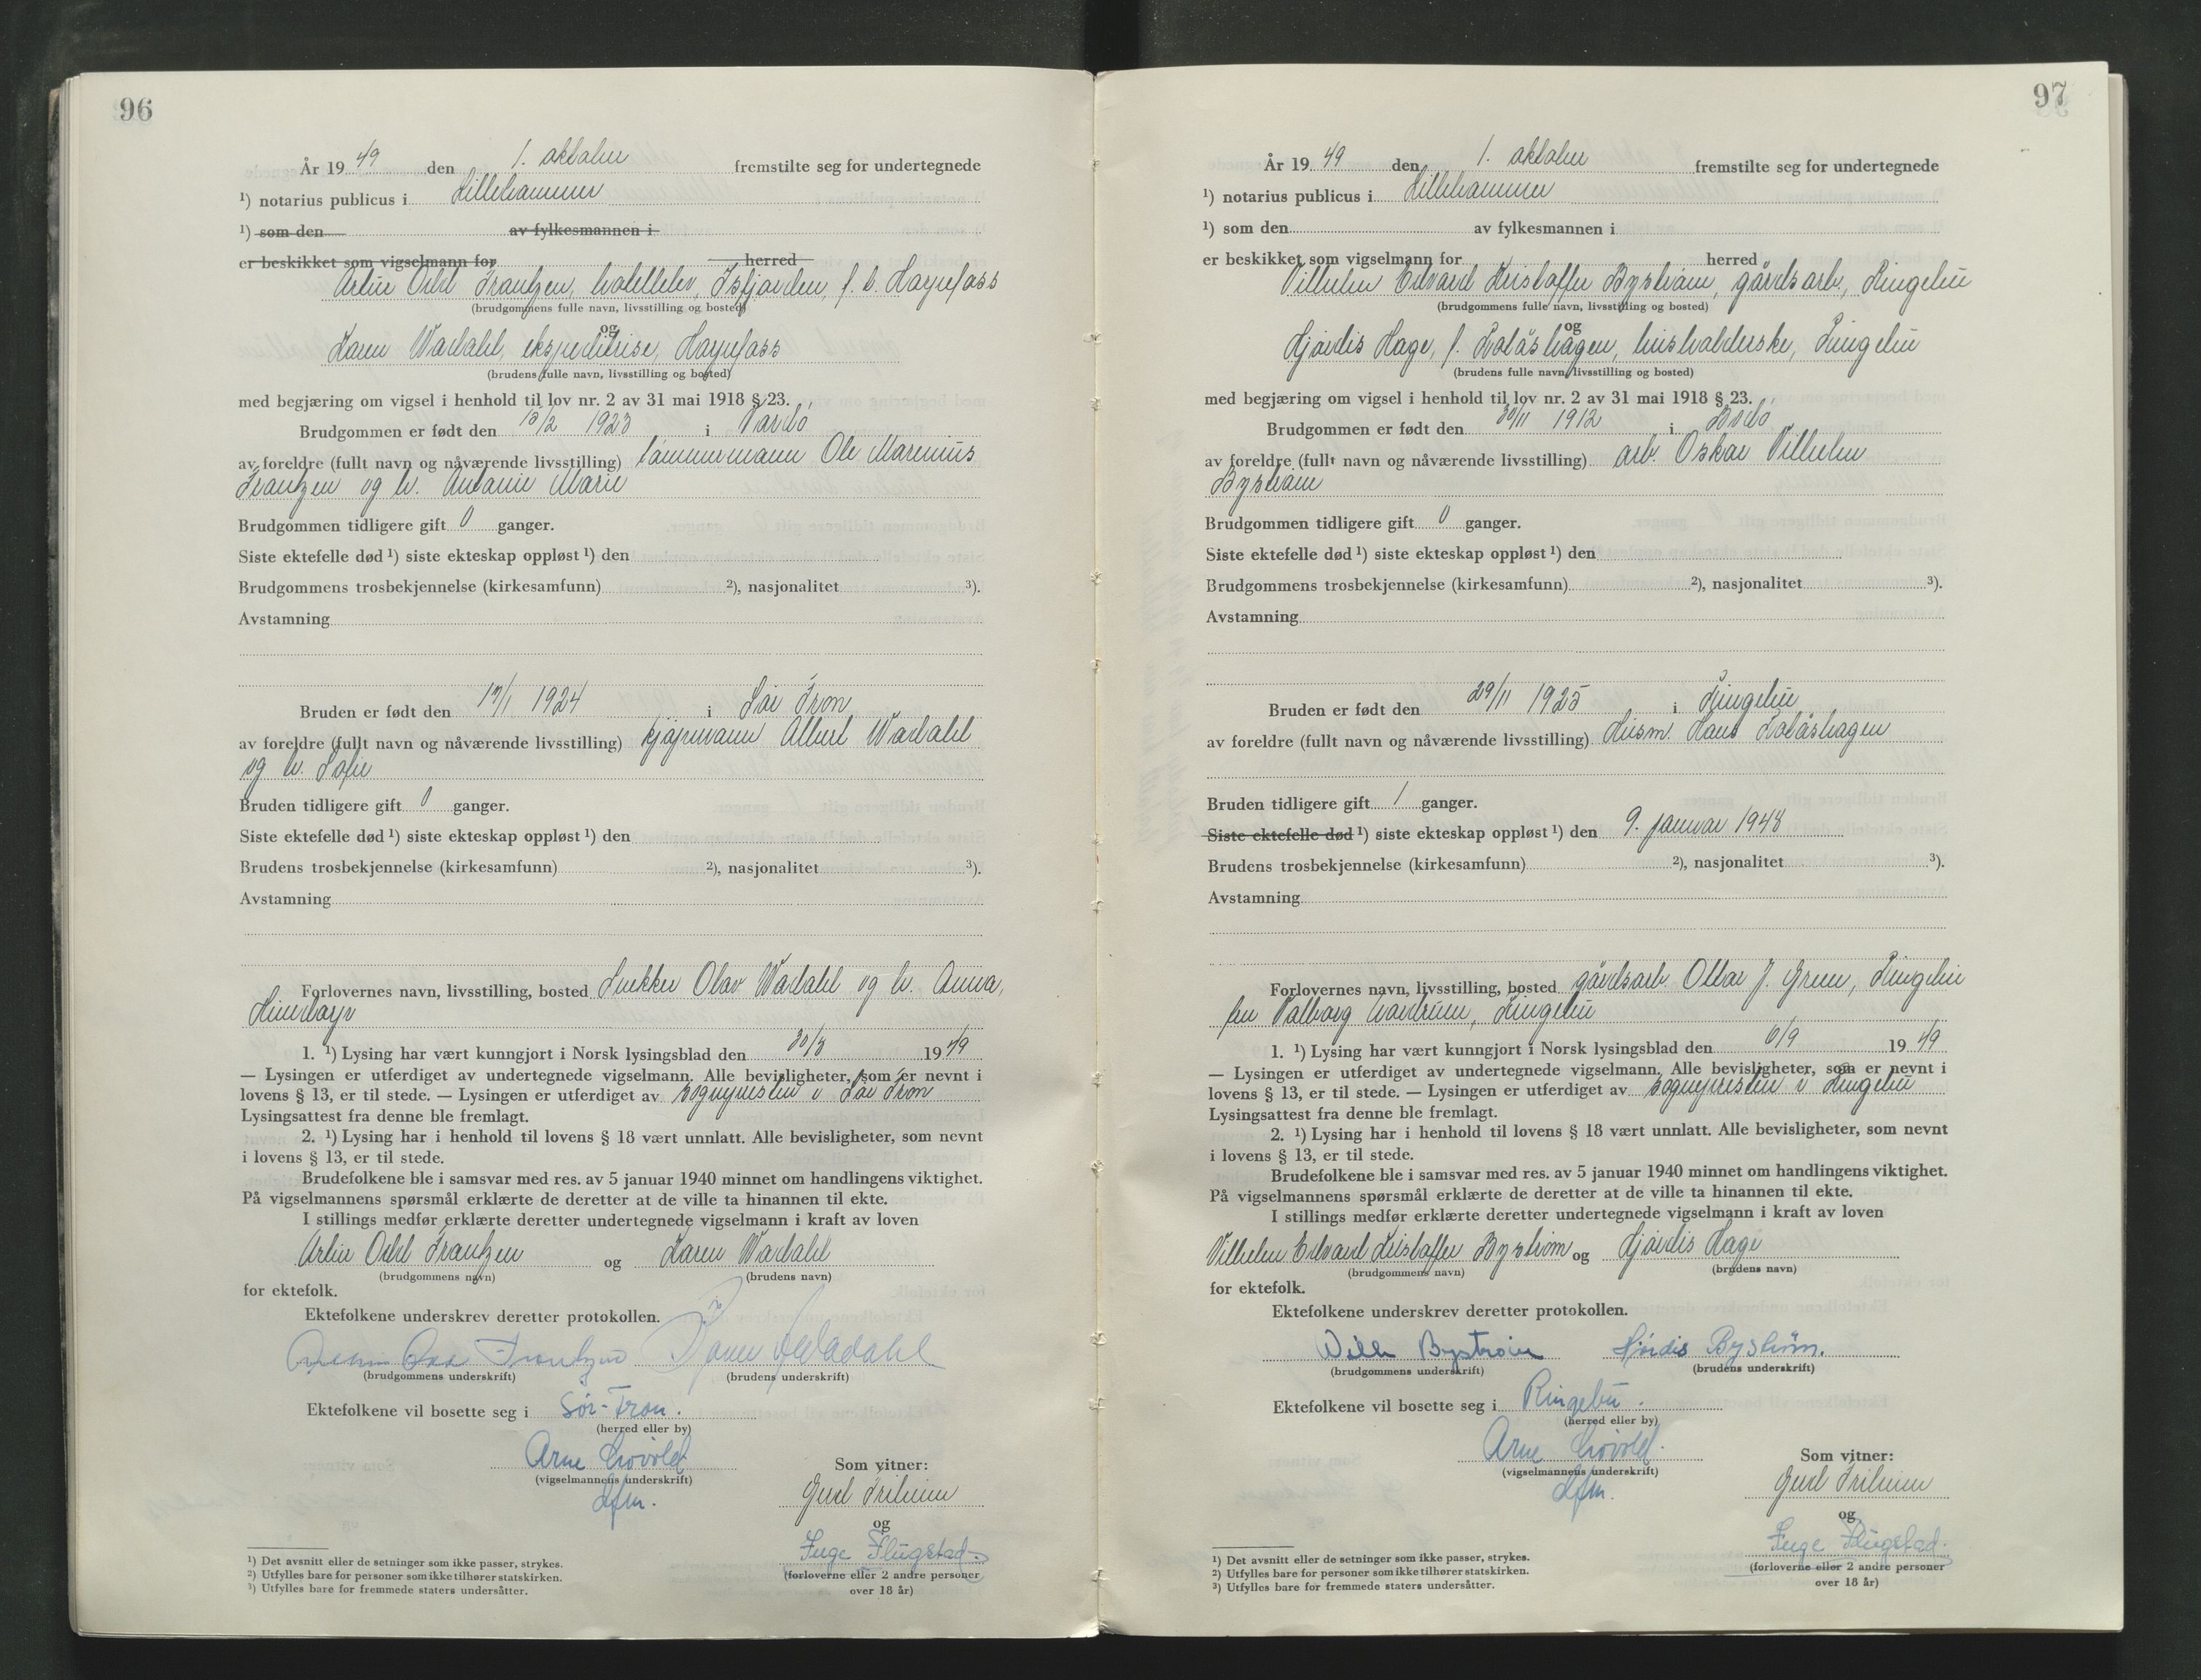 96
År 19 49 den 1. oktober fremstilte seg for undertegnede
¹) notarius publicus i Lillehammer
¹) som den av fylkesmannen i
er beskikket som vigselmann for herred
Artur Odd Frantzen, hotellelev, Isfjorden, f. b. Harpefoss
(brudgommens fulle navn, livsstilling og bosted)
og
Karen Wadahl, ekspeditrise, Harpefoss
(brudens fulle navn, livsstilling og bosted)
med begjæring om vigsel i henhold til lov nr. 2 av 31 mai 1918 § 23.
Brudgommen er født den 13/2 1923 i Vardö
av foreldre (fullt navn og nåværende livsstilling) tömmermann Ole Marenius
Frantzen og h. Antonie Marie
Brudgommen tidligere gift 0 ganger.
Siste ektefelle død ¹) siste ekteskap oppløst ¹) den
Brudgommens trosbekjennelse (kirkesamfunn) ²), nasjonalitet ³).
Avstamning
Bruden er født den 17/1 1924 i Sör Fron
av foreldre (fullt navn og nåværende livsstilling) kjöpmann Albert Wadahl
og h. Sofie
Bruden tidligere gift 0 ganger.
Siste ektefelle død ¹) siste ekteskap oppløst ¹) den
Brudens trosbekjennelse (kirkesamfunn) ²), nasjonalitet ³).
Avstamning
Forlovernes navn, livsstilling, bosted Snekker Olav Wadahl og h. Anna,
Hundorp
1. ¹) Lysing har vært kunngjort i Norsk lysingsblad den 30/8 19 49
— Lysingen er utferdiget av undertegnede vigselmann. Alle bevisligheter, som er nevnt i
lovens § 13, er til stede. — Lysingen er utferdiget av sognepresten i Sör Fron
Lysingsattest fra denne ble fremlagt.
2. ¹) Lysing har i henhold til lovens § 18 vært unnlatt. Alle bevisligheter, som nevnt
i lovens § 13, er til stede.
Brudefolkene ble i samsvar med res. av 5 januar 1940 minnet om handlingens viktighet.
På vigselmannens spørsmål erklærte de deretter at de ville ta hinannen til ekte.
I stillings medfør erklærte deretter undertegnede vigselmann i kraft av loven
Artur Odd Frantzen og Karen Wadahl
(brudgommens navn) (brudens navn)
for ektefolk.
Ektefolkene underskrev deretter protokollen.
Odd Frantzen Karen Wadahl
(brudgommens underskrift) (brudens underskrift)
Ektefolkene vil bosette seg i Sör-Fron.
(herred eller by)
Arne Lövold
(vigselmannens underskrift)
Som vitner:
Gerd
og
Inge Flugstad
(forloverne eller 2 andre personer
over 18 år)
¹) Det avsnitt eller de setninger som ikke passer, strykes.
²) Utfylles bare for personer som ikke tilhører statskirken.
³) Utfylles bare for fremmede staters undersåtter.
97
År 19 49 den 1. oktober fremstilte seg for undertegnede
¹) notarius publicus i Lillehammer
¹) som den av fylkesmannen i
er beskikket som vigselmann for herred
Vilhelm Edvard Kristoffer Byström, gårdsarb., Ringebu
(brudgommens fulle navn, livsstilling og bosted)
og
Hjördis Hage, f. Kolåshagen, husholderske, Ringebu
(brudens fulle navn, livsstilling og bosted)
med begjæring om vigsel i henhold til lov nr. 2 av 31 mai 1918 § 23.
Brudgommen er født den 30/11 1912 i Bodö
av foreldre (fullt navn og nåværende livsstilling) arb. Oskar Vilhelm
Byström
Brudgommen tidligere gift 0 ganger.
Siste ektefelle død ¹) siste ekteskap oppløst ¹) den
Brudgommens trosbekjennelse (kirkesamfunn) ²), nasjonalitet ³).
Avstamning
Bruden er født den 29/11 1925 i Ringebu
av foreldre (fullt navn og nåværende livsstilling) Husm. Hans Kolåshagen
Bruden tidligere gift 1 ganger.
Siste ektefelle død ¹) siste ekteskap oppløst ¹) den 9. januar 1948
Brudens trosbekjennelse (kirkesamfunn) ²), nasjonalitet ³).
Avstamning
Forlovernes navn, livsstilling, bosted gårdsarb. Ottar J. Gren, Ringebu
fru Valborg, Ringebu
1. ¹) Lysing har vært kunngjort i Norsk lysingsblad den 6/9 19 49
— Lysingen er utferdiget av undertegnede vigselmann. Alle bevisligheter, som er nevnt i
lovens § 13, er til stede. — Lysingen er utferdiget av sognepresten i Ringebu
Lysingsattest fra denne ble fremlagt.
2. ¹) Lysing har i henhold til lovens § 18 vært unnlatt. Alle bevisligheter, som nevnt
i lovens § 13, er til stede.
Brudefolkene ble i samsvar med res. av 5 januar 1940 minnet om handlingens viktighet.
På vigselmannens spørsmål erklærte de deretter at de ville ta hinannen til ekte.
I stillings medfør erklærte deretter undertegnede vigselmann i kraft av loven
Vilhelm Edvard Kristoffer Byström og Hjördis Hage
(brudgommens navn) (brudens navn)
for ektefolk.
Ektefolkene underskrev deretter protokollen.
Vilh Byström Hjördis Byström.
(brudgommens underskrift) (brudens underskrift)
Ektefolkene vil bosette seg i Ringebu.
(herred eller by)
Arne Lövold.
(vigselmannens underskrift)
Som vitner:
Gerd
og
Inge Flugstad.
(forloverne eller 2 andre personer
over 18 år)
¹) Det avsnitt eller de setninger som ikke passer, strykes.
²) Utfylles bare for personer som ikke tilhører statskirken.
³) Utfylles bare for fremmede staters undersåtter.